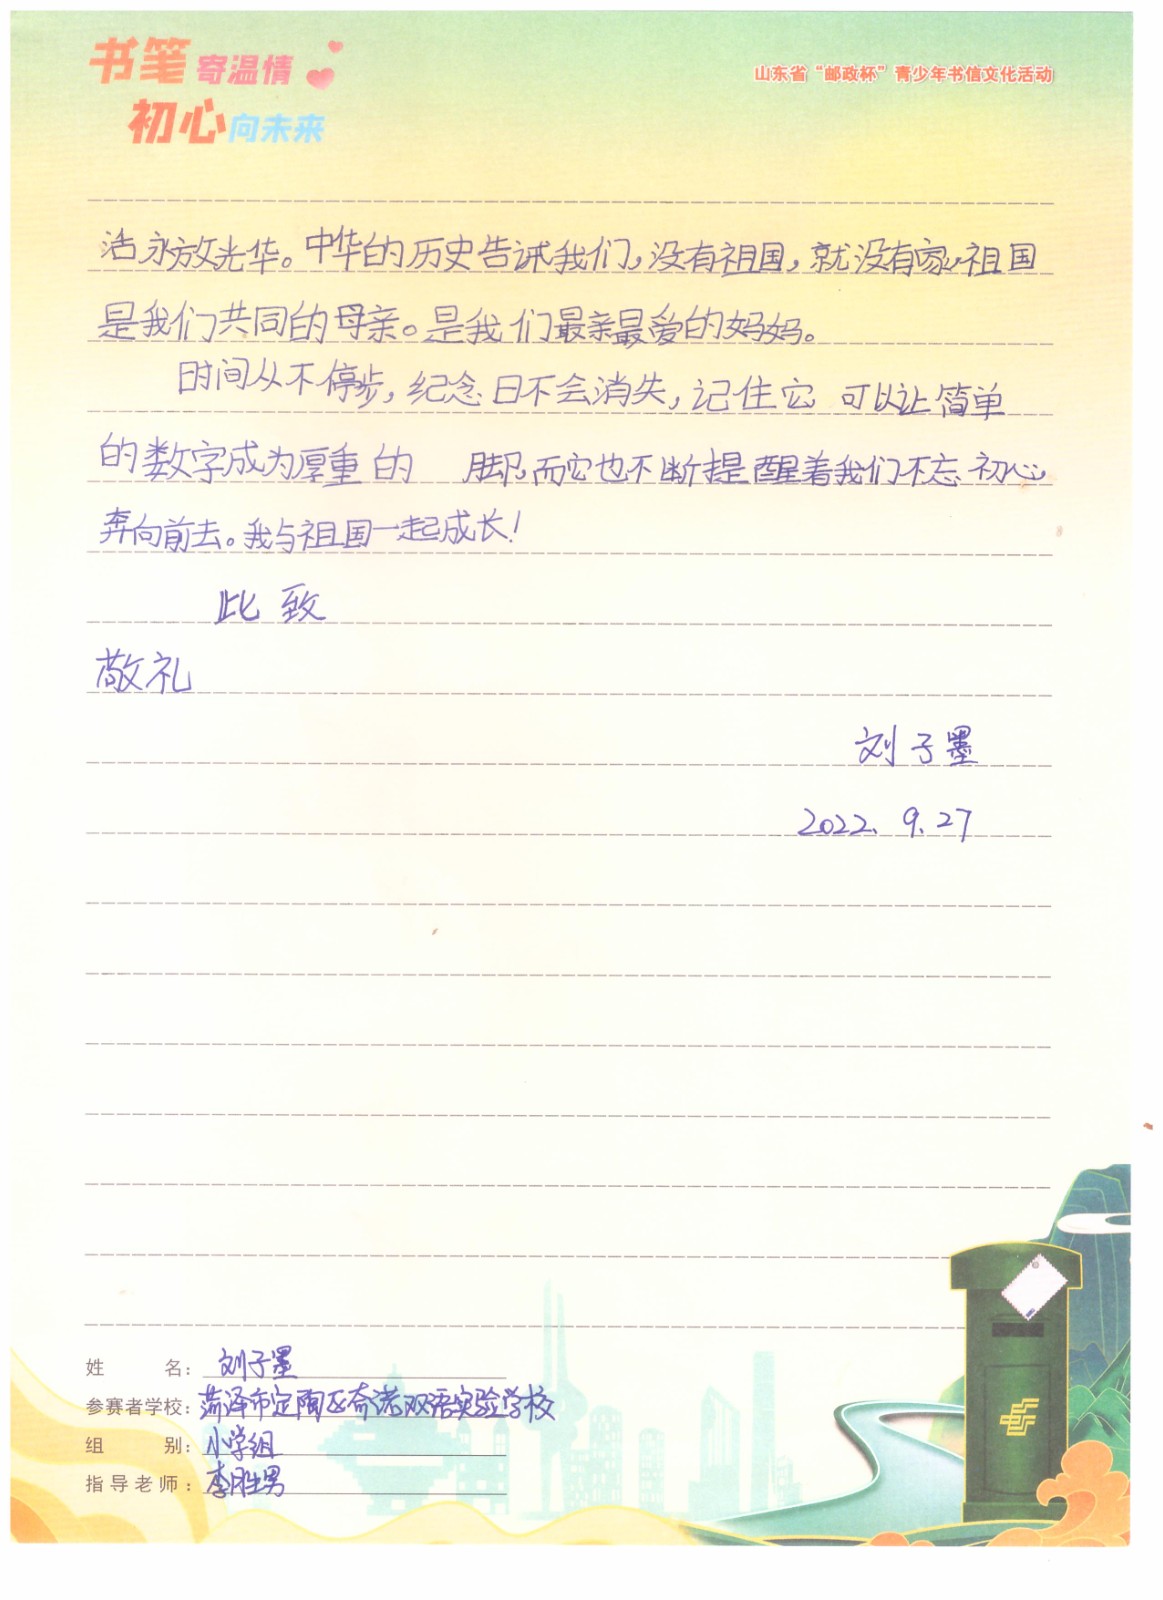 书笔寄温情
初心向未来
山东省“邮政杯”青少年书信文化活动
活永放光华。中华的历史告诫我们，没有祖国，就没有家。祖国
是我们共同的母亲。是我们最亲最爱的妈妈。
时间从不停步，纪念日不会消失，记住它 可以让简单
的数字成为厚重的 脚，而它也不断提醒着我们不忘初心
奔向前去。我与祖国一起成长！
此致
敬礼
刘子墨
2022.9.27
姓 名：刘子墨
参赛者学校：菏泽市定陶区奇诺双语实验学校
组 别：小学组
指导老师：李胜男